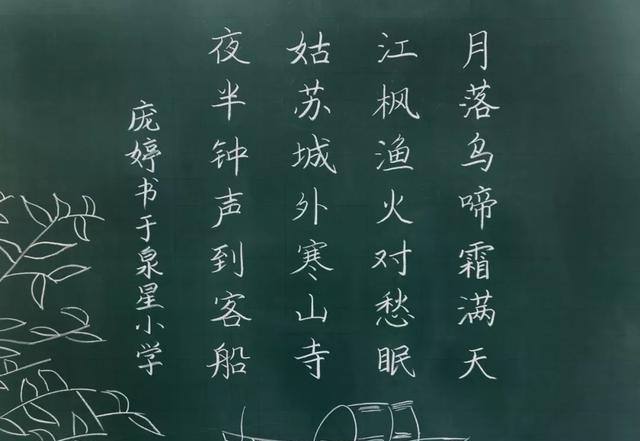 月落乌啼霜满天
江枫渔火对愁眠
姑苏城外寒山寺
夜半钟声到客船
庞婷书于泉星小学